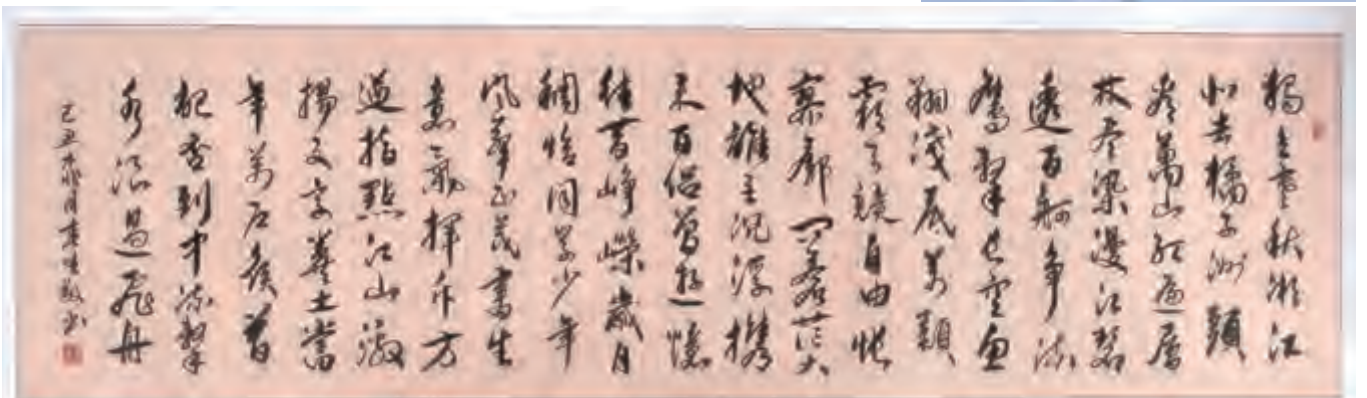 獨立寒秋湘江
北去橘子洲頭
看萬山紅遍層
林盡染漫江碧
透百舸爭流
鷹擊長空魚
翔淺底萬類
霜天競自由悵
寥廓問蒼茫大
地誰主沉浮攜
來百侶曾遊憶
往昔崢嶸歲月
稠恰同學少年
風華正茂書生
意氣揮斥方
遒指點江山激
揚文字糞土當
年萬戶侯曾
記否到中流擊
水浪遏飛舟
己丑月書